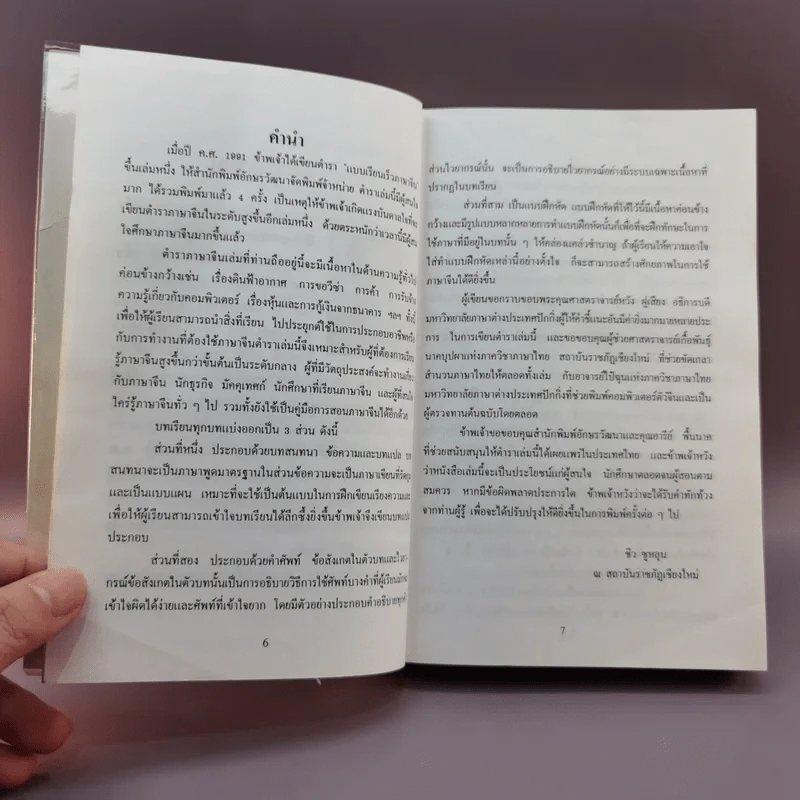 คำนำ
เมื่อปี ค.ศ. 1991 ข้าพเจ้าได้เขียนตำรา "แบบเรียนเร็วภาษาจีน"
ขึ้นเล่มหนึ่ง ให้สำนักพิมพ์อักษรวัฒนาจัดพิมพ์จำหน่าย ตำราเล่มนี้มีผู้สนใจ
มาก ได้รวมพิมพ์มาแล้ว 4 ครั้ง เป็นเหตุให้ข้าพเจ้าเกิดแรงบันดาลใจที่จะ
เขียนตำราภาษาจีนในระดับสูงขึ้นอีกเล่มหนึ่ง ด้วยตระหนักว่าเวลานี้มีผู้สน
ใจศึกษาภาษาจีนมากขึ้นแล้ว
ตำราภาษาจีนเล่มที่ท่านถืออยู่นี้จะมีเนื้อหาในด้านความรู้ทั่วไป
ค่อนข้างกว้างเช่น เรื่องดินฟ้าอากาศ การขอวีซ่า การค้า การรับจ้าง
ความรู้เกี่ยวกับคอมพิวเตอร์ เรื่องหุ้นและการกู้เงินจากธนาคาร ฯลฯ ทั้งนี้
เพื่อให้ผู้เรียนสามารถนำสิ่งที่เรียน ไปประยุกต์ใช้ในการประกอบอาชีพหรือ
กับการทำงานที่ต้องใช้ภาษาจีน ตำราเล่มนี้จึงเหมาะสำหรับผู้ที่ต้องการเรียน
รู้ภาษาจีนสูงขึ้นกว่าขั้นต้นเป็นระดับกลาง ผู้ที่มีวัตถุประสงค์จะทำงานเกี่ยว
กับภาษาจีน นักธุรกิจ มัคคุเทศก์ นักศึกษาที่เรียนภาษาจีน และผู้ที่สนใจ
ใคร่รู้ภาษาจีนทั่ว ๆ ไป รวมทั้งยังใช้เป็นคู่มือการสอนภาษาจีนได้อีกด้วย
บทเรียนทุกบทแบ่งออกเป็น 3 ส่วน ดังนี้
ส่วนที่หนึ่ง ประกอบด้วยบทสนทนา ข้อความและบทแปล บท
สนทนาจะเป็นภาษาพูดมาตรฐานในส่วนข้อความจะเป็นภาษาเขียนที่รัดกุม
และเป็นแบบแผน เหมาะที่จะใช้เป็นต้นแบบในการฝึกเขียนเรียงความและ
เพื่อให้ผู้เรียนสามารถเข้าใจบทเรียนได้ลึกซึ้งยิ่งขึ้นข้าพเจ้าจึงเขียนบทแปล
ประกอบ
ส่วนที่สอง ประกอบด้วยคำศัพท์ ข้อสังเกตในตัวบทและไวยา-
กรณ์ข้อสังเกตในตัวบทนั้นเป็นการอธิบายวิธีการใช้ศัพท์บางคำที่ผู้เรียนมักจะ
เข้าใจผิดได้ง่ายและศัพท์ที่เข้าใจยาก โดยมีตัวอย่างประกอบคำอธิบายทุกคำ
6
ส่วนไวยากรณ์นั้น จะเป็นการอธิบายไวยากรณ์อย่างมีระบบเฉพาะเนื้อหาที่
ปรากฏในบทเรียน
ส่วนที่สาม เป็นแบบฝึกหัด แบบฝึกหัดที่ให้ไว้นี้มีเนื้อหาค่อนข้าง
กว้างและมีรูปแบบหลากหลายการทำแบบฝึกหัดนั้นก็เพื่อที่จะฝึกทักษะในการ
ใช้ภาษาที่มีอยู่ในบทนั้น ๆ ให้คล่องแคล่วชำนาญ ถ้าผู้เรียนให้ความเอาใจ
ใส่ทำแบบฝึกหัดเหล่านี้อย่างตั้งใจ ก็จะสามารถสร้างศักยภาพในการใช้
ภาษาจีนได้ดียิ่งขึ้น
ผู้เขียนขอกราบขอบพระคุณศาสตราจารย์หวัง ฝูเสียง อธิการบดี
มหาวิทยาลัยภาษาต่างประเทศปักกิ่งผู้ให้คำชี้แนะอันมีค่ายิ่งมากมายหลายประ
การ ในการเขียนตำราเล่มนี้ และขอขอบคุณผู้ช่วยศาสตราจารย์เกื้อพันธุ์
นาคบุปผาแห่งภาควิชาภาษาไทย สถาบันราชภัฏเชียงใหม่ ที่ช่วยขัดเกลา
สำนวนภาษาไทยให้ตลอดทั้งเล่ม กับอาจารย์ไป๋ฉุนแห่งภาควิชาภาษาไทย
มหาวิทยาลัยภาษาต่างประเทศปักกิ่งที่ช่วยพิมพ์คอมพิวเตอร์ตัวจีนและเป็น
ผู้ตรวจทานต้นฉบับโดยตลอด
ข้าพเจ้าขอขอบคุณสำนักพิมพ์อักษรวัฒนาและคุณอารีย์ พื้นนาค
ที่ช่วยสนับสนุนให้ตำราเล่มนี้ได้เผยแพร่ในประเทศไทย และข้าพเจ้าหวัง
ว่าหนังสือเล่มนี้จะเป็นประโยชน์แก่ผู้สนใจ นักศึกษาตลอดจนผู้สอนตาม
สมควร หากมีข้อผิดพลาดประการใด ข้าพเจ้าหวังว่าจะได้รับคำทักท้วง
จากท่านผู้รู้ เพื่อจะได้ปรับปรุงให้ดียิ่งขึ้นในการพิมพ์ครั้งต่อ ๆ ไป
ชิว ซูหลุน
ณ สถาบันราชภัฏเชียงใหม่
7